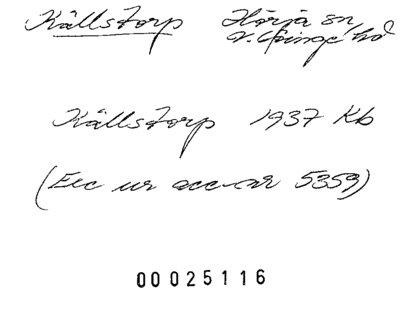 Källstorp Hörja sn
V. Göinge hd
Källstorp 1937 Kb
(Exc ur acc-nr 5359)
00025116